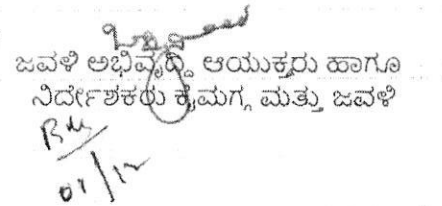 ಜವಳಿ ಅಭಿವೃದ್ಧಿ ಆಯುಕ್ತರು ಹಾಗೂ
ನಿರ್ದೇಶಕರು ಕೈಮಗ್ಗ ಮತ್ತು ಜವಳಿ
01/12